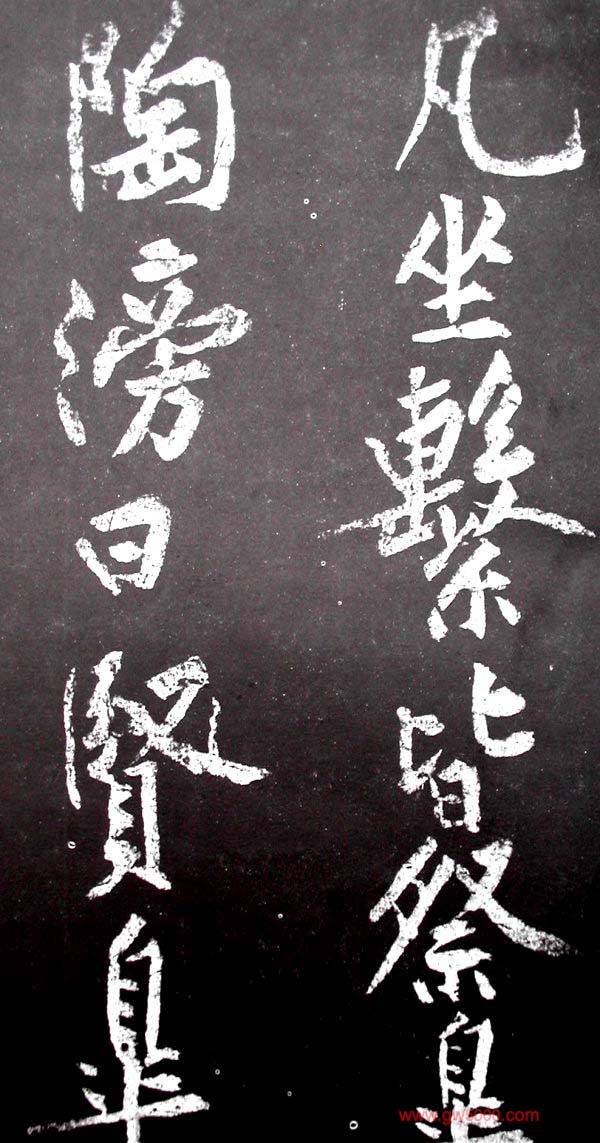 凡坐繫皆祭皐
陶滂曰賢皐
www.gw1000.com